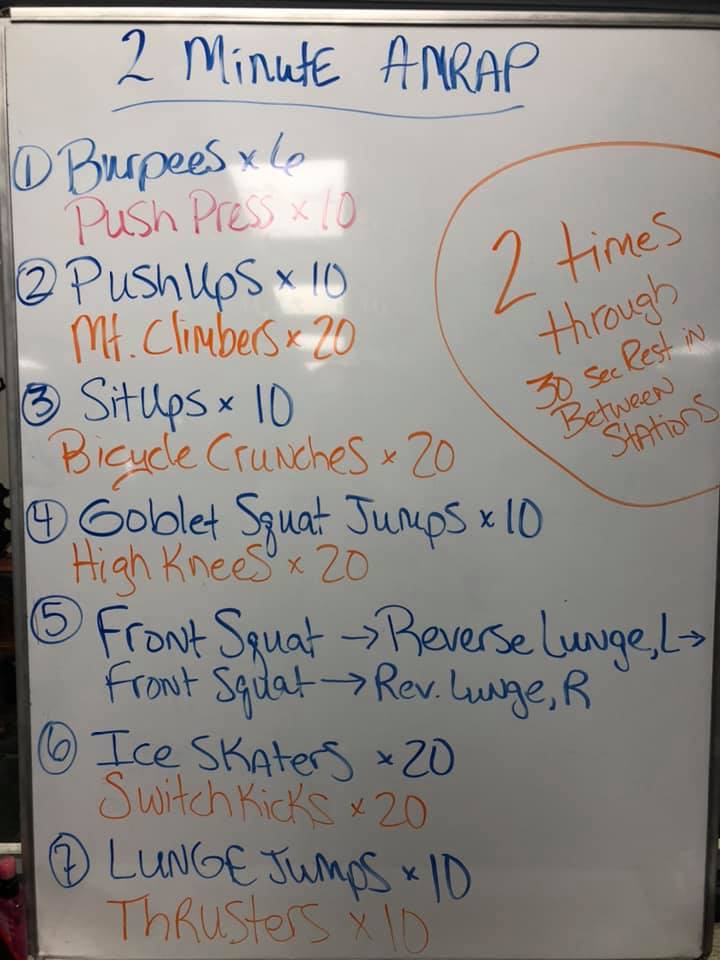 2 Minute AMRAP
① Burpees x 6
Push Press x 10
② Push Ups x 10
Mt. Climbers x 20
③ Sit Ups x 10
Bicycle Crunches x 20
④ Goblet Squat Jumps x 10
High Knees x 20
⑤ Front Squat → Reverse Lunge, L →
Front Squat → Rev. Lunge, R
⑥ Ice Skaters x 20
Switch Kicks x 20
⑦ Lunge Jumps x 10
Thrusters x 10
2 times
through
30 sec Rest in
Between
Stations